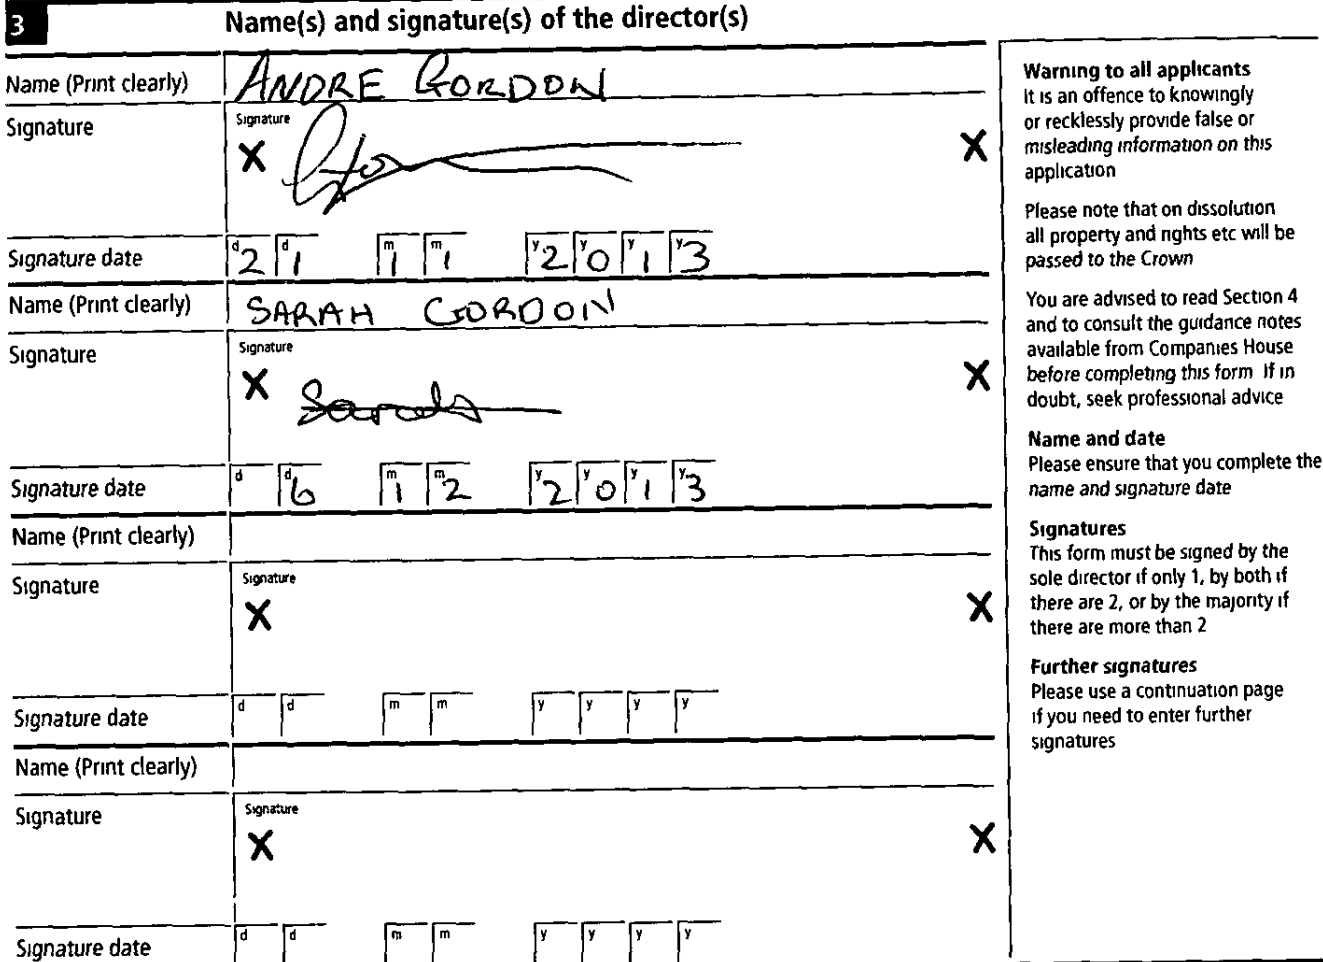 3 Name(s) and signature(s) of the director(s)
Name (Print clearly) ANDRE GORDON
Signature
Signature
X X
Signature date d2 d1 m1 m1 y2 y0 y1 y3
Name (Print clearly) SARAH GORDON
Signature
Signature
X Sarah X
Signature date d d6 m1 m2 y2 y0 y1 y3
Name (Print clearly)
Signature
Signature
X X
Signature date d d m m y y y y
Name (Print clearly)
Signature
Signature
X X
Signature date d d m m y y y y
Warning to all applicants
It is an offence to knowingly
or recklessly provide false or
misleading information on this
application
Please note that on dissolution
all property and rights etc will be
passed to the Crown
You are advised to read Section 4
and to consult the guidance notes
available from Companies House
before completing this form If in
doubt, seek professional advice
Name and date
Please ensure that you complete the
name and signature date
Signatures
This form must be signed by the
sole director if only 1, by both if
there are 2, or by the majority if
there are more than 2
Further signatures
Please use a continuation page
if you need to enter further
signatures